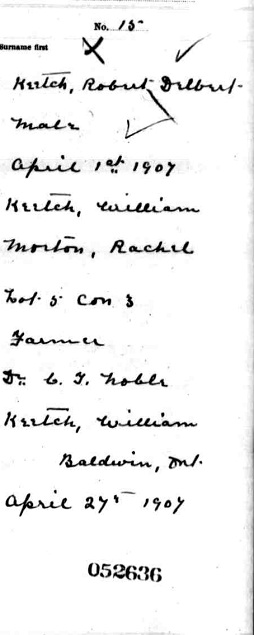 No. 15
Surname first
Keetch, Robert Delbert
Male
April 1st 1907
Keetch, William
Morton, Rachel
Lot 5 Con 3
Farmer
Dr. C. T. Noble
Keetch, William
Baldwin, Ont.
April 27 1907
052636